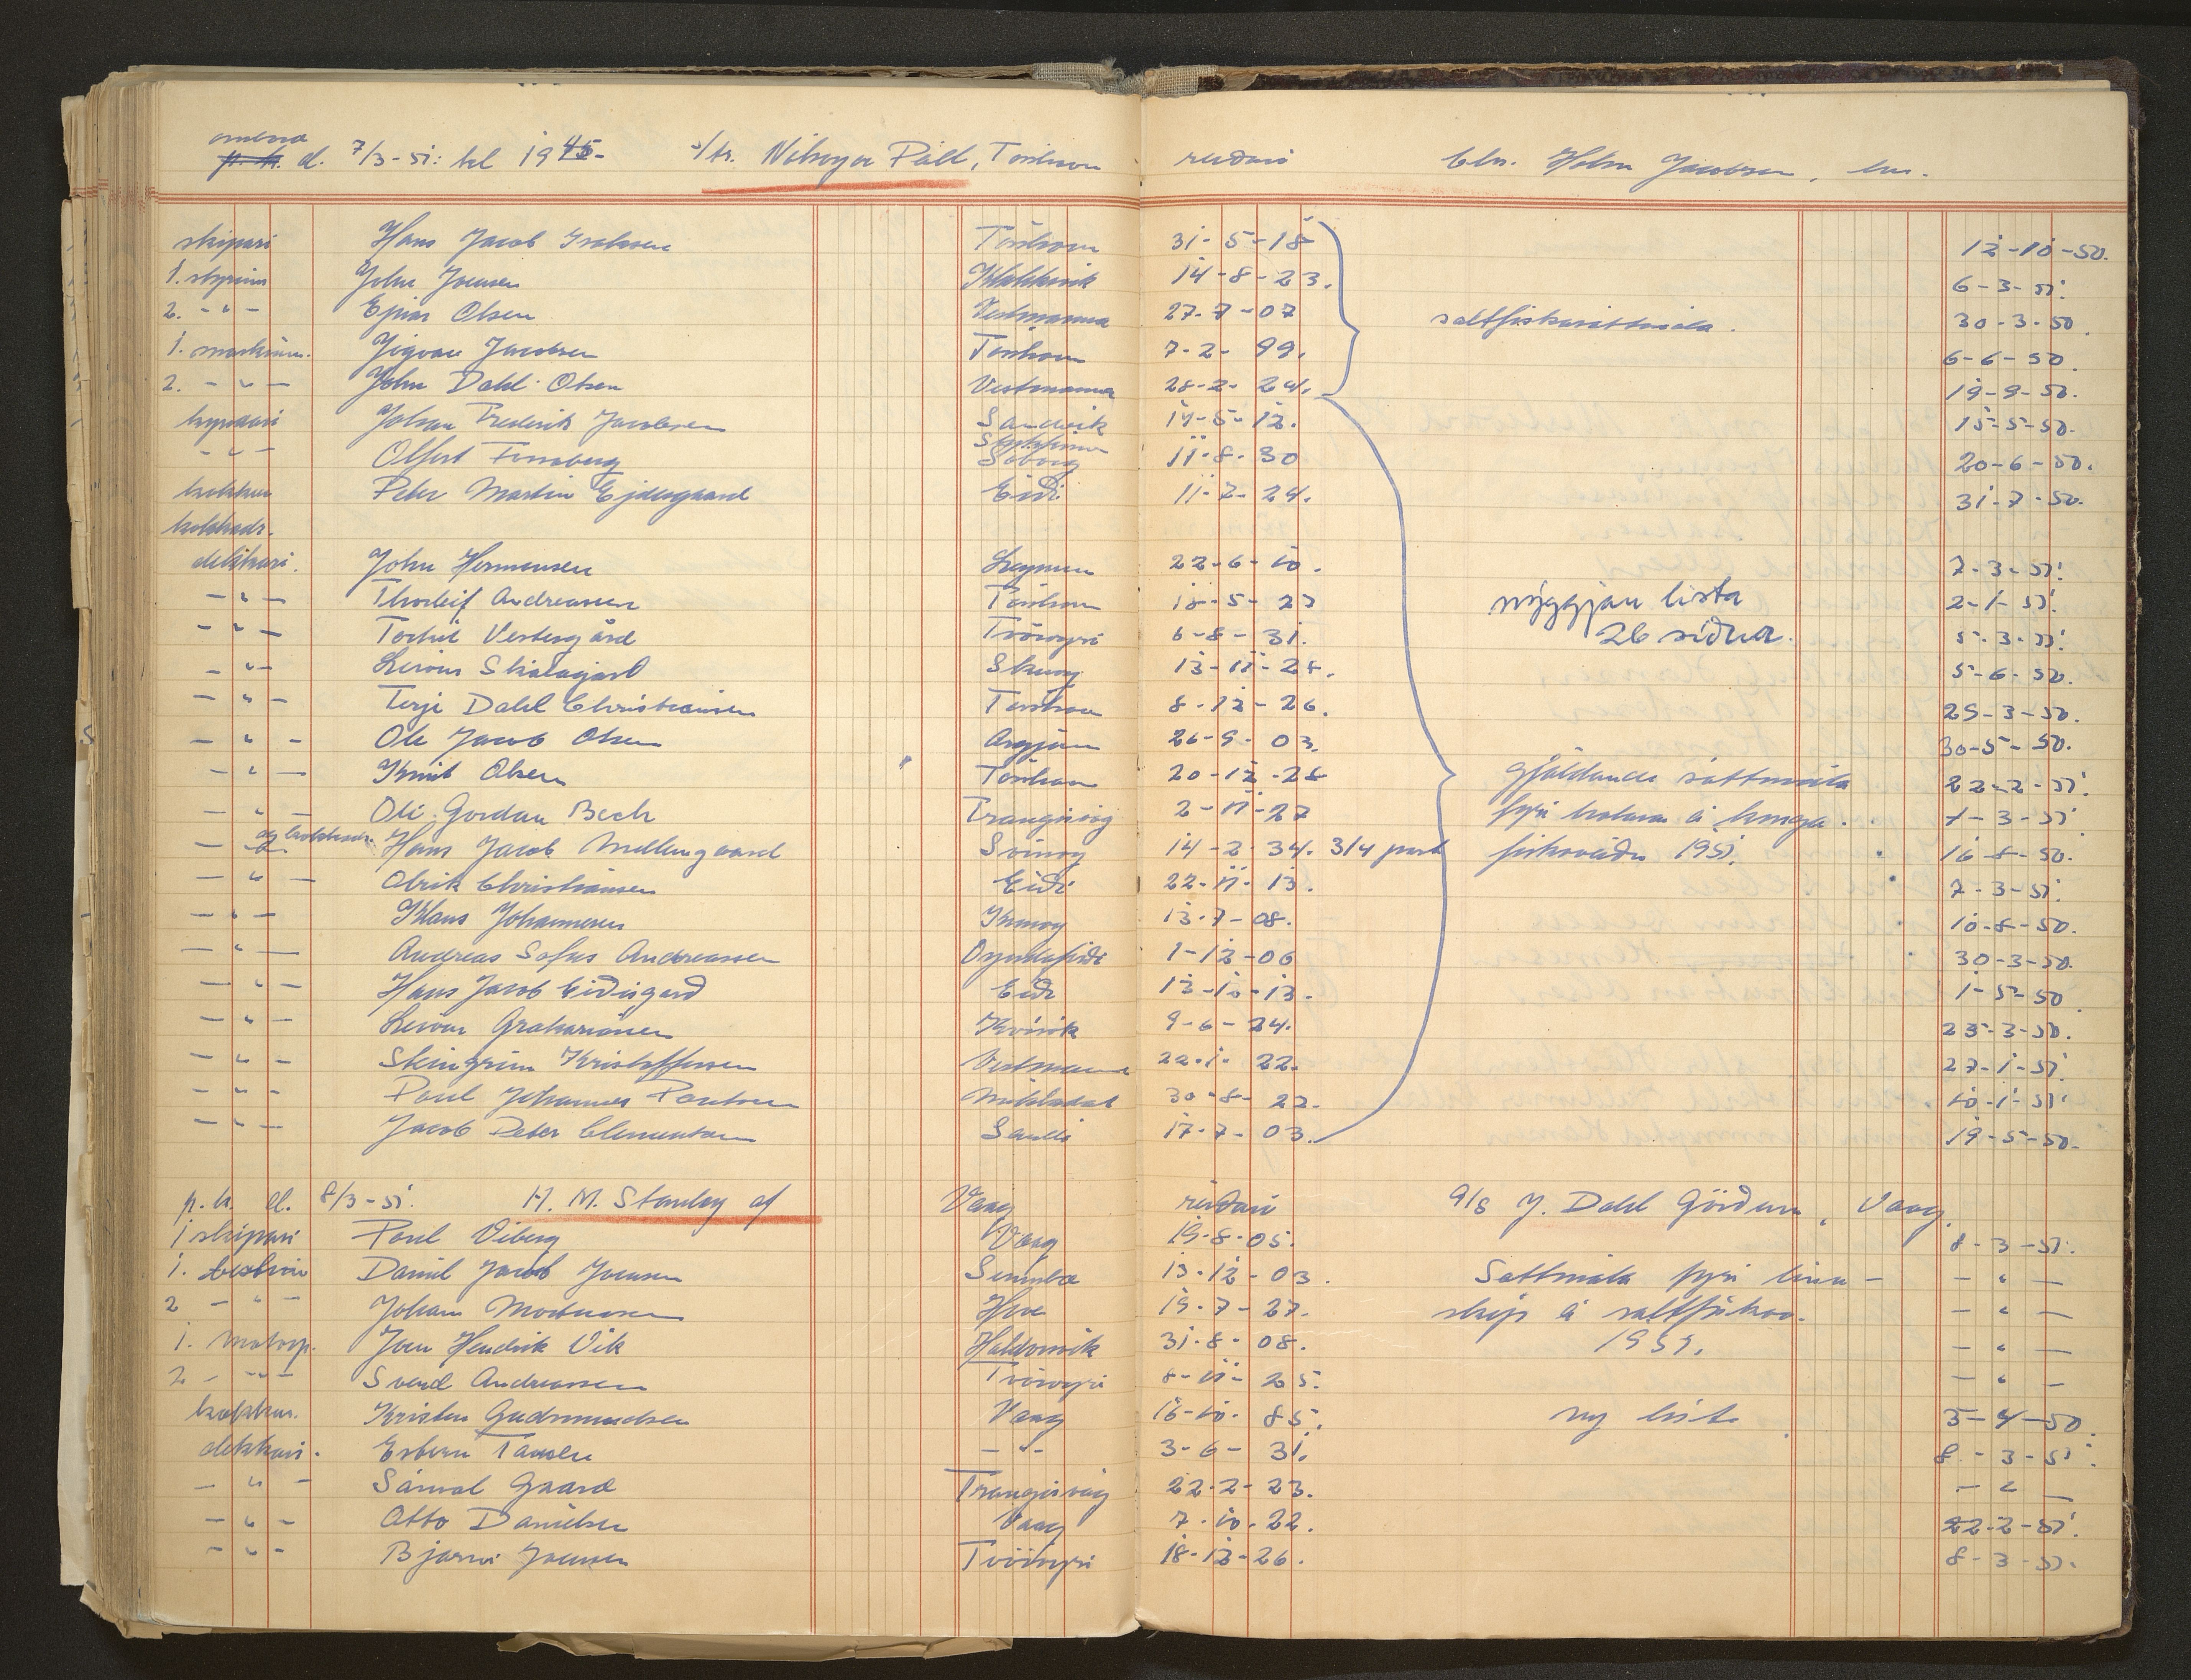 umbord
p.k. d. 7/3-51: kl 1945- s/tr. Nólsoyar Páll, Tórshavn reiðari Chr. Holm Jacobsen, hav.
skipari Hans Jacob Tórshavn 31-5-18 12-10-50.
1. stýrim John Joensen Klakksvik 14-8-23. 6-3-51.
2. -"- Ejnar Olsen Vestmanna 27-7-07 saltfiskasáttmála. 30-3-50.
1. maskinm. Jigvan Jacobsen Tórshavn 7-2-99. 6-6-50.
2. -"- John Dahl-Olsen Vestmanna 28-2-24. 19-9-50.
kyndari Johan Frederik Jacobsen Sandvik 14-5-12. 15-5-50.
-"- Olfert Fornaberg Søborg 11-8-30 20-6-50.
kokkur Peter Martin Ejdesgaard Eiði 11-7-24. 31-7-50.
kokkadr.
dekkari. John Hermansen 22-6-10. 7-3-51.
-"- Thorleif Andreassen Tórshavn 18-5-27 2-1-51.
-"- Torkil Vestergård Tvöroyri 6-8-31. nýggjan lista 26 síður. 5-3-51.
-"- Leivur Skálagard Skuvoy 13-11-28. 5-6-50.
-"- Terji Dahl Christiansen Tórshavn 8-12-26. 25-3-50.
-"- Ole Jacob Olsen Argjum 26-9-03. 30-5-50.
-"- Knút Olsen Tórshavn 20-12-28 gjaldandi sáttmála 22-2-51.
-"- Oli Gordan Bech Trangisvág 2-11-27 fyri trolara á kongа- 7-3-51
og kokkadr. Hans Jacob Mellemgaard Svinoy 14-2-34. 3/4 part fiskaveiðu 1951. 16-8-50.
-"- Olrik Christiansen Eiði 22-11-13. 7-3-51.
-"- Klaus Johannesen Kunoy 13-7-08. 10-8-50.
-"- Andreas Sofus Andreassen Oyndafirði 1-12-06 30-3-50.
-"- Hans Jacob Eiðisgard Eiði 13-10-13. 1-5-50
-"- Leivur Zachariassen Kvivik 9-6-24. 23-3-50.
-"- Steingrim Kristoffersen Vestmanna 22-1-22. 27-1-51.
-"- Poul Johannes Poulsen Mikladal 30-8-22. 10-1-51.
-"- Jacob Peter Clementsen Sandi 17-7-03. 19-5-50.
p.k. d. 8/3-51. H. M. Stanley af Vaag reiðari A/S J. Dahl Görðum, Vaag.
1 skipari Poul Viberg Vaag 19-8-05. 8-3-51.
1. bestm Daniel Jacob Joensen Sumba 13-12-03. Sáttmála fyri línu- -"-
2 -"- Johan Mortensen Hove 19-7-27. skip á saltfiskav. -"-
1. motorp. Joen Hendrik Vik Haldorsvik 31-8-08. 1951. -"-
2 -"- Svend Andreassen Tvöroyri 8-11-25. -"-
kokkur. Kristen Gudmundsen Vaag 16-10-85. ny list 5-4-50.
dekkari. Esbern Tausen -"- 3-6-31. 8-3-51.
-"- Sámal Gaard Trangisvág 22-2-23. -"-
-"- Otto Danielsen Vaag 7-10-22. 22-2-51.
-"- Bjarni Joensen Tvöroyri 18-12-26. 8-3-51.